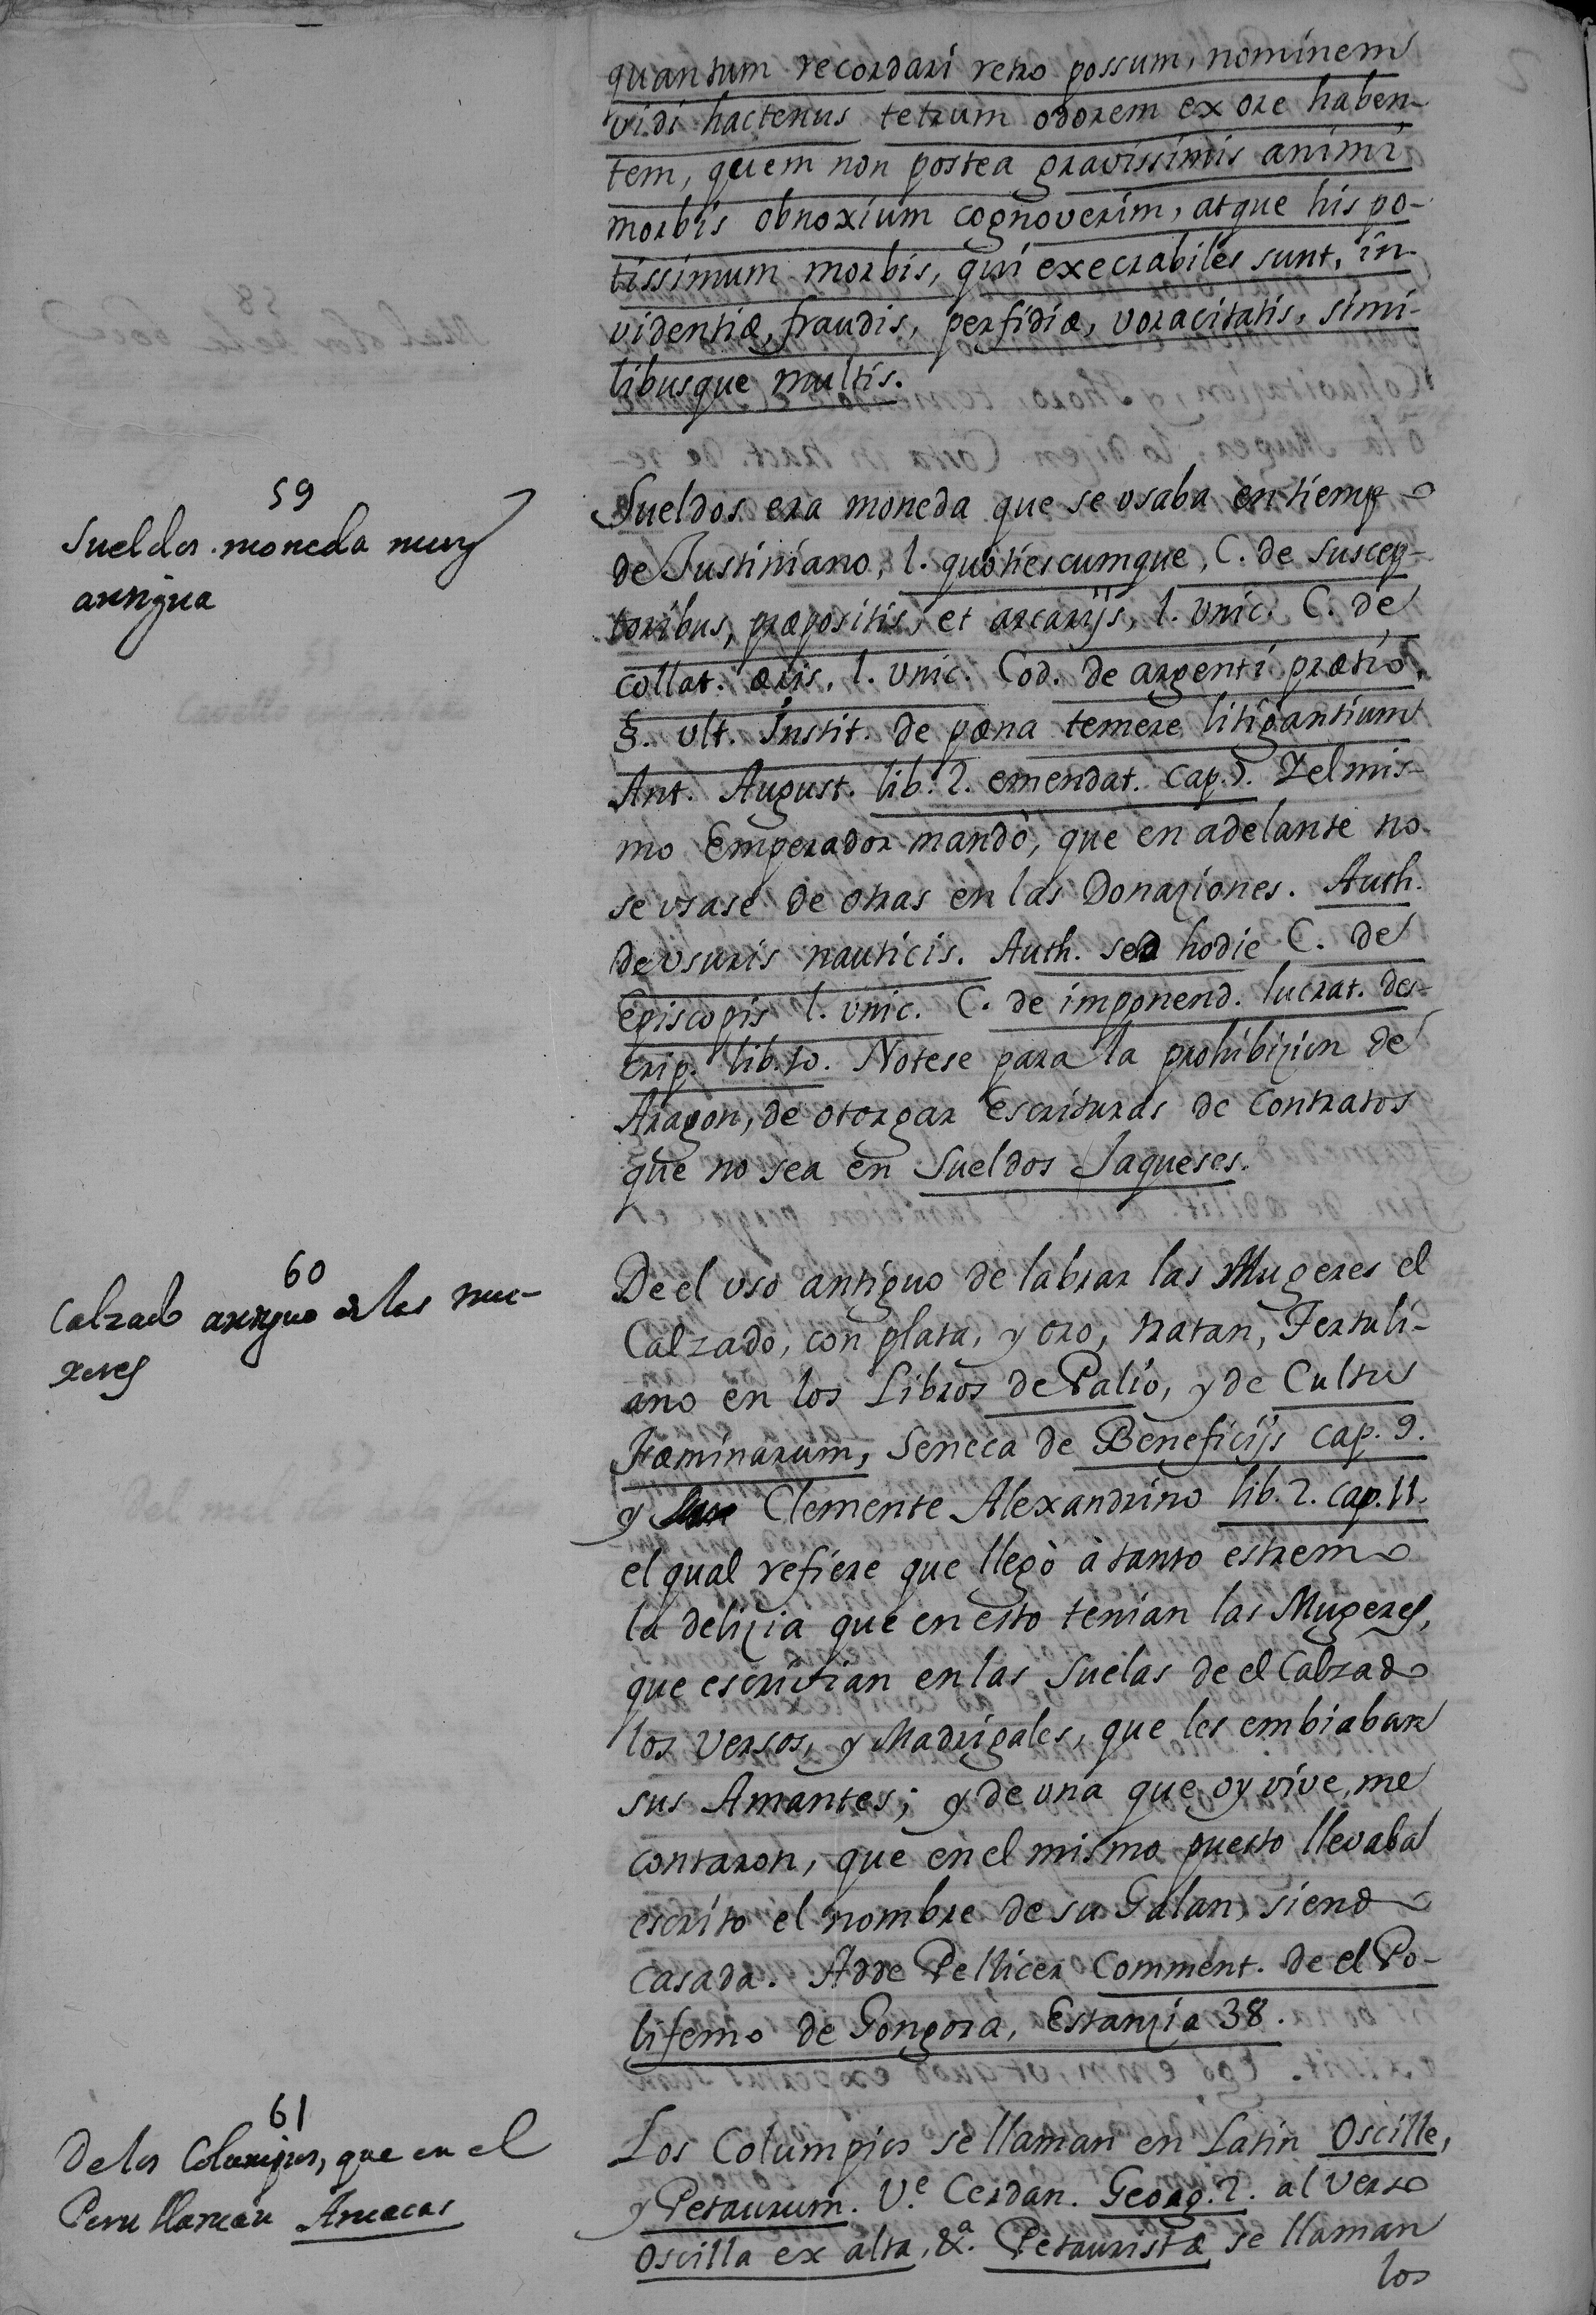 quantum recordari retro possum, nominem
vidi hactenus tetrum odorem ex ore haben-
tem, quem non postea gravissimis animi
morbis obnoxium cognoverim, atque his po-
tissimum morbis, qui execrabiles sunt, in-
videntiæ, fraudis, perfidiæ, voracitatis, simi-
libusque multis.
59
Sueldos moneda muy
antigua
Sueldos era moneda que se usaba en tiempo
de Justiniano, l. quotiescumque, C. de suscep-
toribus, præpositis, et arcarijs, l. unic. C. de
collat. æris, l. unic. Cod. de argenti prætio,
§. ult. Instit. de pæna temere litigantium
Ant. August. lib. 2. emendat. cap. 
Y el mis-
mo Emperador mandò, que en adelante no
se usase de otras en las Donaziones. Auth.
de usuris nauticis. Auth. sed hodie C. de
Episcopis l. unic. C. de imponend. lucrat. des-
crip. lib. 10. Notese para la prohibizion de
Aragon, de otorgar escrituras de contratos
que no sea en Sueldos Jaqueses.
60
Calzado antiguo de las mu-
xeres
De el uso antiguo de labrar las Mugeres el
Calzado, con plata, y oro, tratan, Tertuli-
ano en los Libros de Palio, y de Cultu
Fæminarum, Seneca de Beneficijs cap. 9.
y Clemente Alexandrino lib. 2. cap. 11.
el qual refiere que llegò à tanto estremo
la delizia que en esto tenian las Mugeres,
que escrivian en las suelas de el Calzado
los versos, y Madrigales, que les embiaban
sus Amantes; y de una que oy vive, me
contaron, que en el mismo puesto llevaba
escrito el nombre de su Galan, siendo
casada. Adde Pellicer Comment. de el Po-
lifemo de Gongora, Estanzia 38.
61
De los Columpios, que en el
Peru llaman Amacas
Los Columpios se llaman en Latin Oscille,
y Petaurum. V.e Cerdan. Georg. 2. al verso
oscilla ex alta, &.a Petauristæ se llaman
los